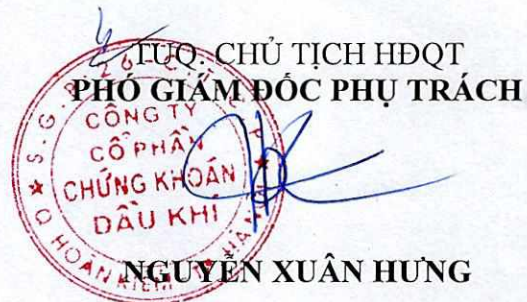 TUQ. CHỦ TỊCH HĐQT
PHÓ GIÁM ĐỐC PHỤ TRÁCH
CÔNG TY
CỔ PHẦN
CHỨNG KHOÁN
DẦU KHÍ
Q HOÀN KIẾM
NGUYỄN XUÂN HƯNG